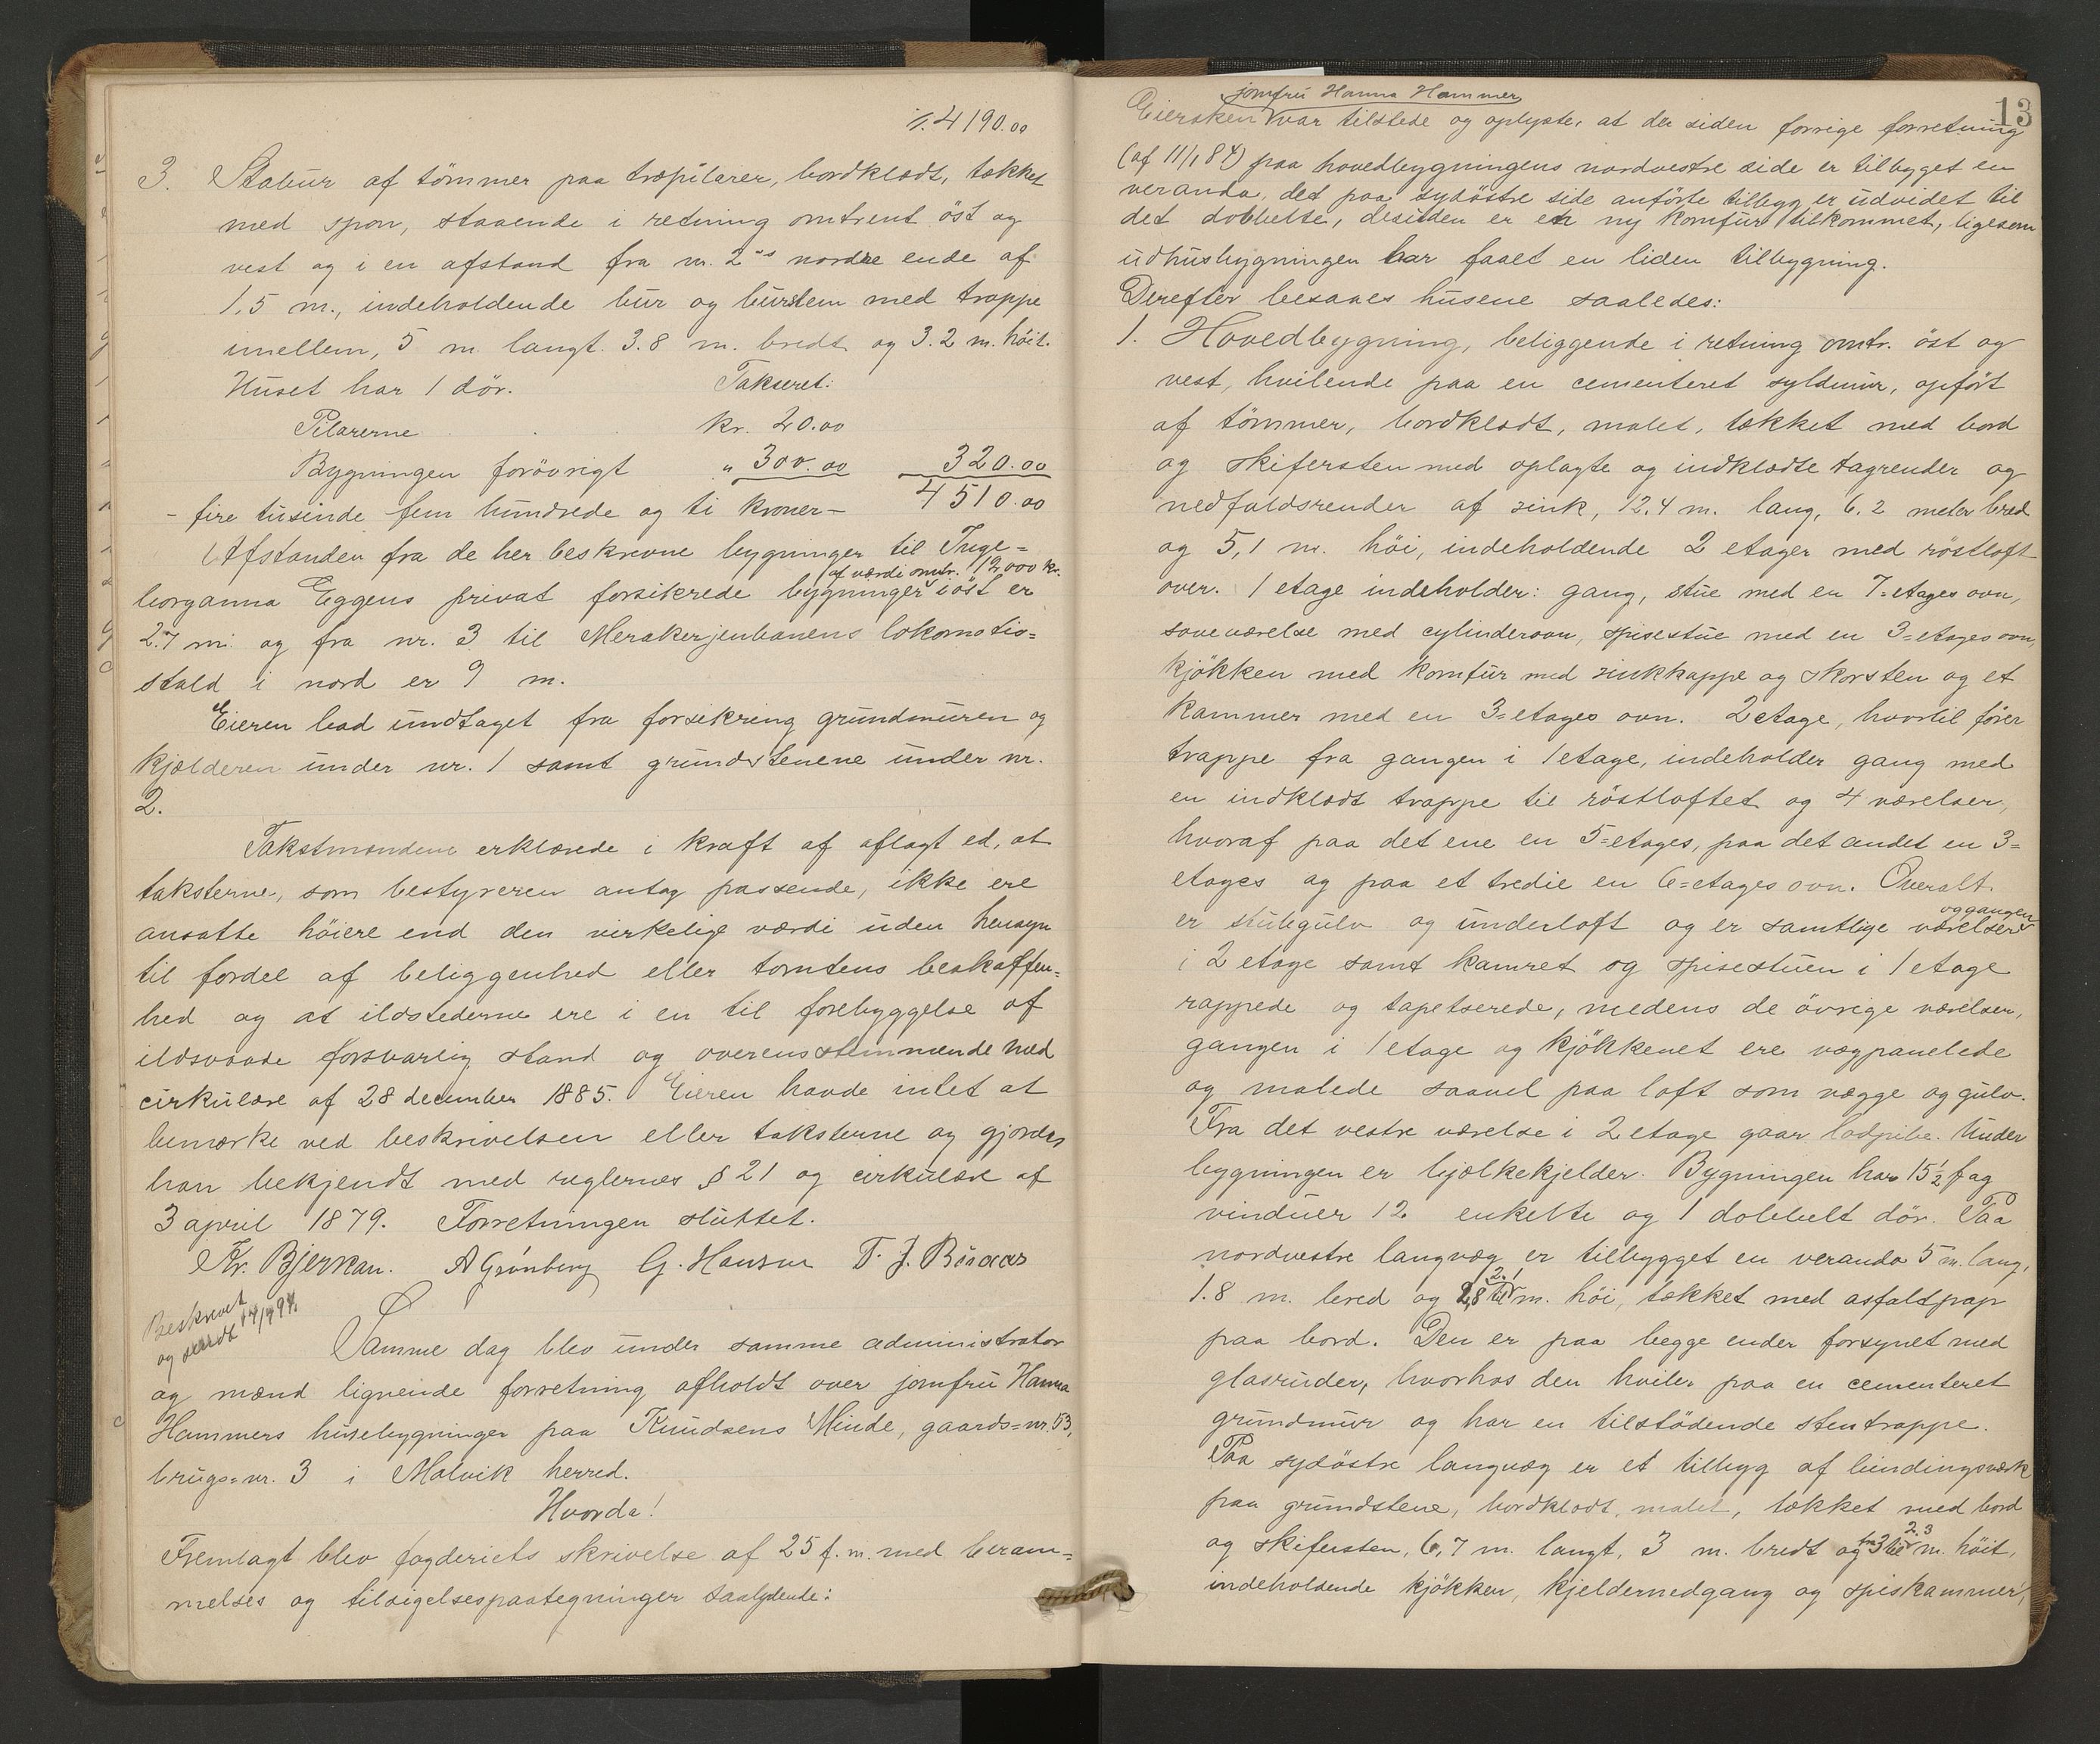 t. 4190.00
3. Stabur af tömmer paa træpilarer, bordklædt, tækket
med spon, staaende i retning omtrent öst og
vest og i en afstand fra nr. 2's nordre ende af
1.5 m., indeholdende bur og burslem med trappe
imellem, 5 m. langt. 3.8 m. bredt og 3.2 m. höit.
Huset har 1 dör. Takseret:
Pilarerne . . kr. 20.00
Bygningen forövrigt " 300.00 320.00
- fire tusinde fem hundrede og ti kroner - 4510.00
Afstanden fra de her beskrevne bygninger til Inge=
af værdi omtr. 12000 kr.
borganna Eggens privat forsikrede bygninger i öst er
2.7 m. og fra nr. 3 til Merakerjenbanens lokomotiv=
stald i nord er 9 m.
Eieren bad undtaget fra forsikring grundmuren og
kjælderen under nr. 1 samt grundstenene under nr.
2.
Takstmændene erklærede i kraft af aflagt ed, at
taksterne, som bestyreren antog passende, ikke ere
ansatte höiere end den virkelige værdi uden hensyn
til fordel af beliggenhed eller tomtens beskaffen=
hed og at ildstederne ere i en til forebyggelse af
ildsvaade forsvarlig stand og overensstemmende med
cirkulære af 28 december 1885. Eieren havde intet at
bemærke ved beskrivelsen eller taksterne og gjordes
han bekjendt med reglernes § 21 og cirkulære af
3 april 1879. Forretningen sluttet.
Kr. Bjerkan. A Grönberg G. Hansen T. J. Buaas
Beskrevet
og sendt 14/9 94.
Samme dag blev under samme administrator
og mænd lignende forretning afholdt over jomfru Hanna
Hammers husebygninger paa Knudsens Minde, gaards=nr. 53,
brugs=nr. 3 i Malvik herred.
Hvorda!
Fremlagt blev fogderiets skrivelse af 25 f. m. med beram=
melses og tilsigelsespaategninger saalydende:
13
jomfru Hanna Hammer
Eiersken var tilstede og oplyste, at der siden forrige forretning
(af 11/1 84) paa hovedbygningens nordvestre side er tilbygget en
veranda, det paa sydöstre side anförte tilbygg er udvidet til
det dobbelte, desuden er en ny komfur tilkommet, ligesom
udhusbygningen har faaet en liden tilbygning.
Derefter besaaes husene saaledes:
1. Hovedbygning, beliggende i retning omtr. öst og
vest, hvilende paa en cementeret syldmur, opfört
af tömmer, bordklædt, malet, tækket med bord
og skifersten med oplagte og indklædte tagrender og
nedfaldsrender af zink, 12.4 m. lang, 6.2 meter bred
og 5,1 m. höi, indeholdende 2 etager med röstloft
over. 1 etage indeholder: gang, stue med en 7=etages ovn,
soveværelse med cylinderovn, spisestue med en 3=etages ovn,
kjökken med komfur med zinkkappe og skorsten og et
kammer med en 3=etages ovn. 2 etage, hvortil förer
trappe fra gangen i 1 etage, indeholder gang med
en indklædt trappe til röstloftet og 4 værelser,
hvoraf paa det ene en 5=etages, paa det andet en 3=
etages og paa et tredie en 6=etages ovn. Overalt
og gangen
er stubgulv og underloft og er samtlige værelser
i 2 etage samt kamret og spisestuen i 1 etage
rappede og tapetserede, medens de övrige værelser,
gangen i 1 etage og kjökkenet ere vægpanelede
og malede saavel paa loft som vægge og gulv.
Fra det vestre værelse i 2 etage gaar lodpibe. Under
bygningen er bjælkekjelder. Bygningen har 15½ fag
vinduer 12 enkelte og 1 dobbelt dör. Paa
nordvestre langvæg er tilbygget en veranda 5 m. lang,
2.1
1.8 m. bred og 2,8 til m. höi, tækket med asfaltpap
paa bord. Den er paa begge ender forsynet med
glasruder, hvorhos den hviler paa en cementeret
grundmur og har en tilstödende stentrappe.
Paa sydöstre langvæg er et tilbyg af bindingsværk
paa grundstene, bordklædt, malet, tækket med bord
2.3
og skifersten, 6,7 m. langt, 3 m. bredt og fra 3 til m. höit,
indeholdende kjökken, kjeldernedgang og spiskammer,